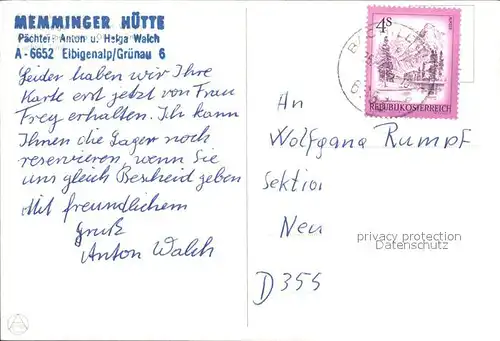 MEMMINGER HÜTTE
Pächter: Anton u. Helga Walch
A-6652 Elbigenalp/Grünau 6
Leider haben wir Ihre
Karte erst jetzt von Frau
Frey erhalten. Ich kann
Ihnen die Lager noch
reservieren, wenn Sie
uns gleich Bescheid geben
Mit freundlichem
Gruß
Anton Walch
4S
REPUBLIK ÖSTERREICH
An
Wolfgang Rumpf
Sektion
Neu
privacy protection
Datenschutz
D 355